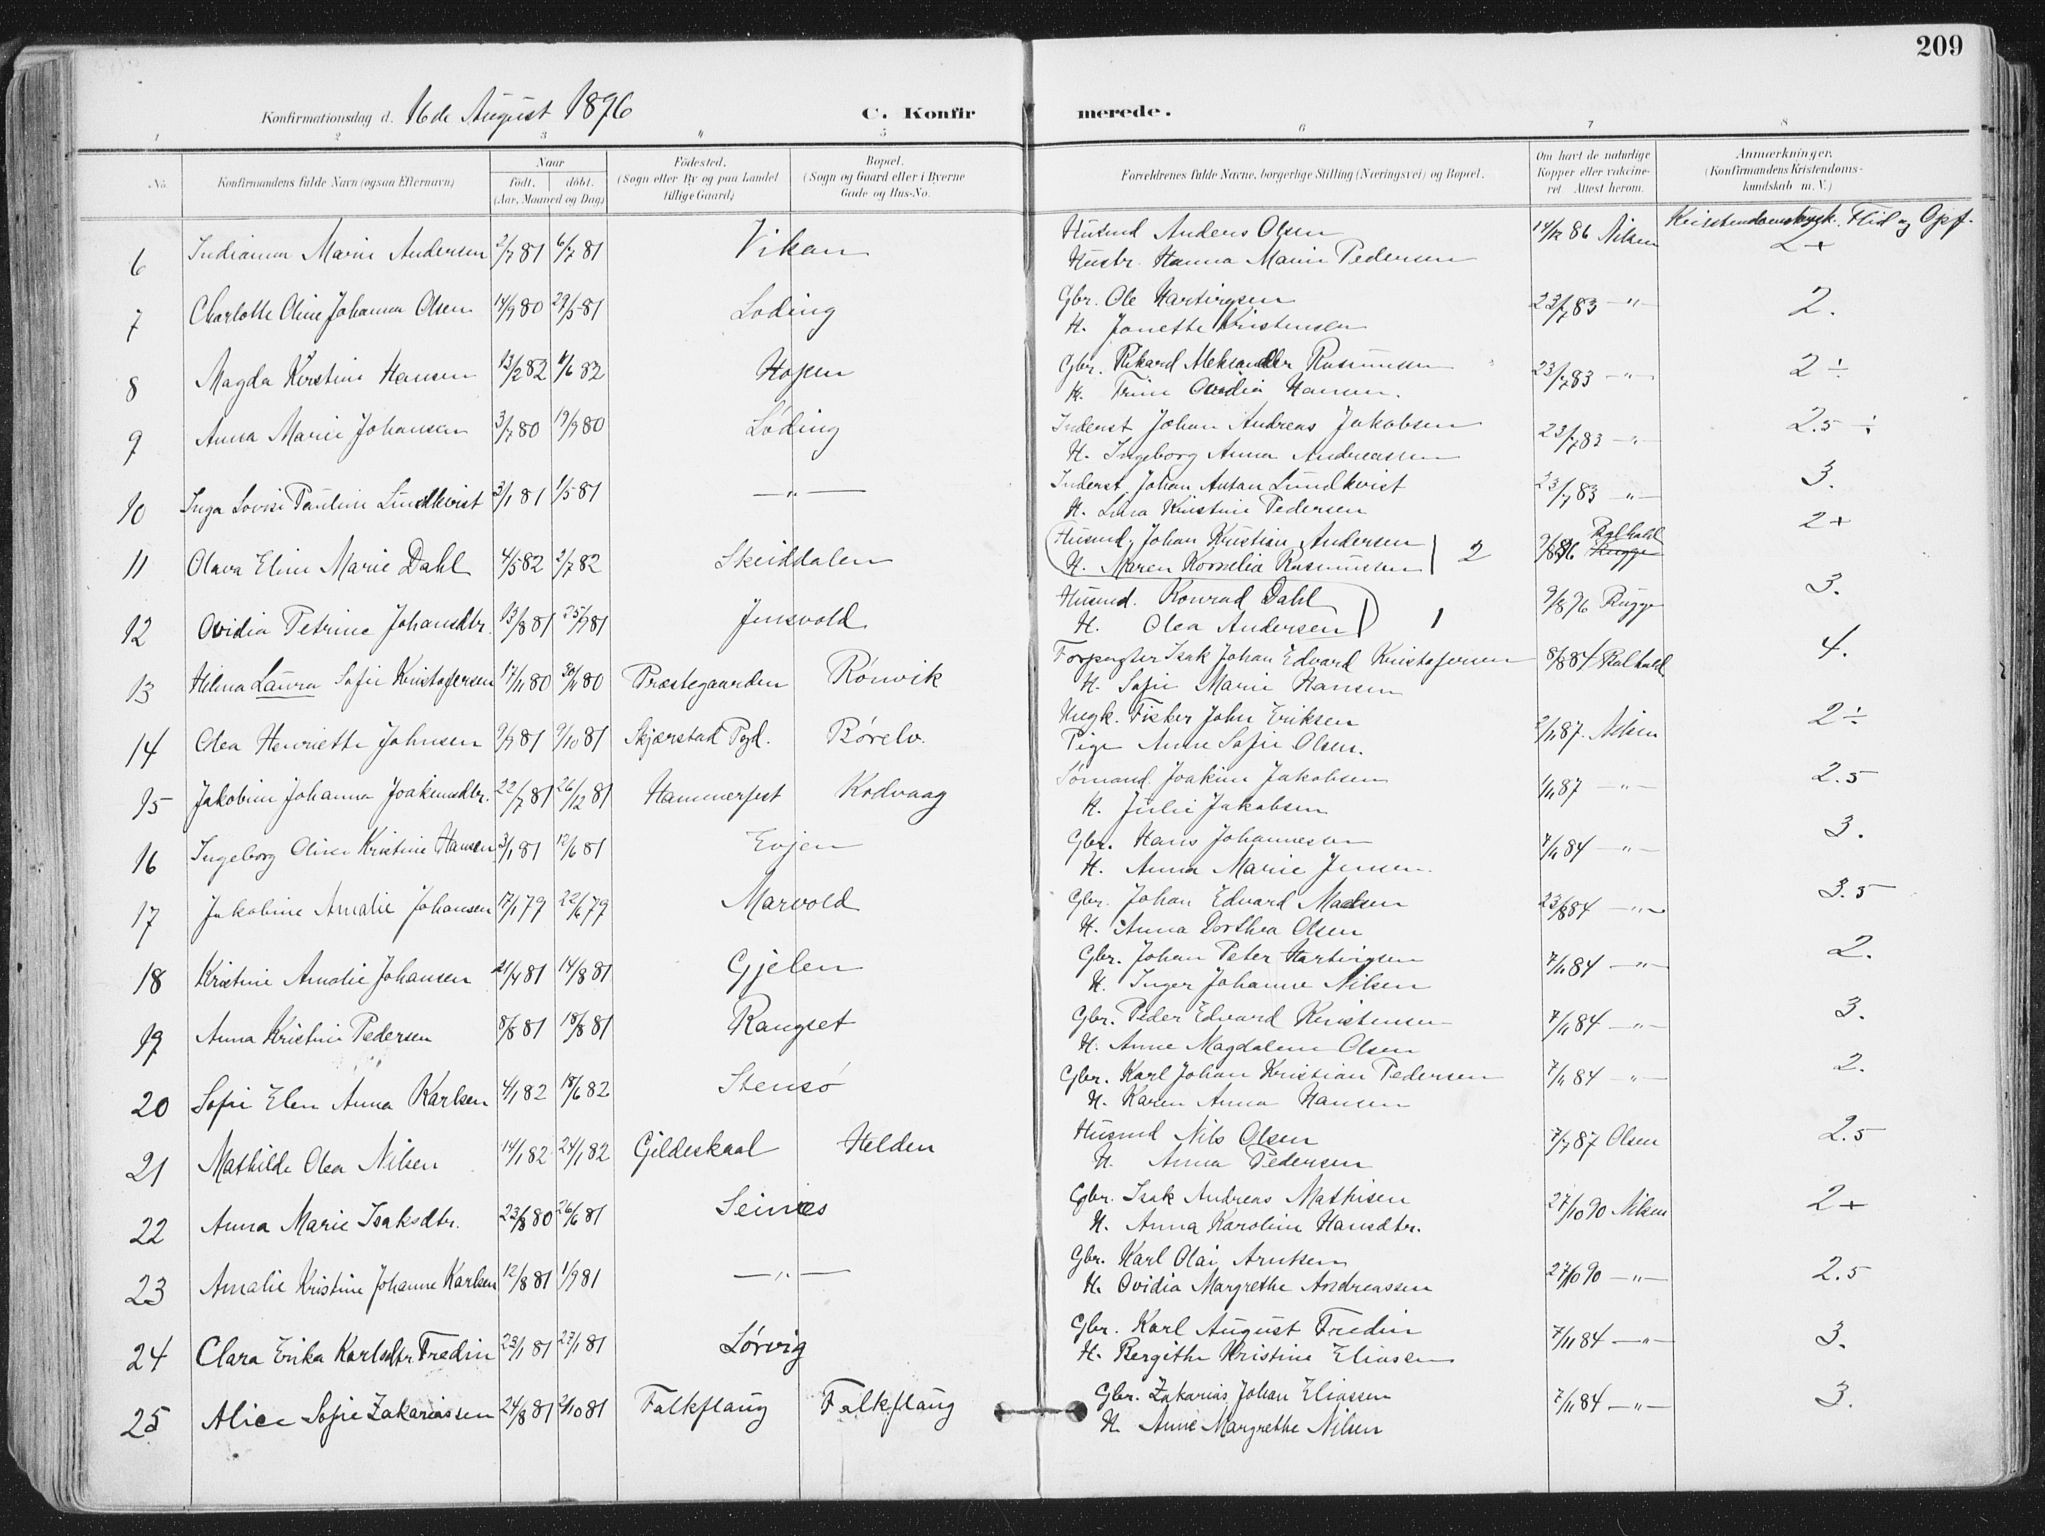 209
Konfirmationsdag d. 16de August 1896 C. Konfir merede.
1 2 3 " 5 6 7 8
No. Konfirmandens fulde Navn (ogsaa Efternavn) Naar födt. döbt. (Aar, Maaned og Dag) Födested. (Sogn eller By og paa Landet tillige Gaard) Bopæl. (Sogn og Gaard eller i Byerne Gade og Hus-No. Forældrenes fulde Navne, borgerlige Stilling (Næringsvei) og Bopæl. Om havt de naturlige Kopper eller vaccineret. Attest herom. Anmærkninger. (Konfirmandens Kristendomskundskab m. V.)
Kristendomskysk. Flid og Opf.
6 Indianna Marie Andersen 2/7 81 6/7 81 Vikan Husmd Anders Olsen 14/12 86 Nilsen 2+
Hustr. Hanna Marie Pedersen
7 Charlotte Oline Johanna Olsen 14/9 80 29/5 81 Loding Gbr. Ole Hartvigsen 23/7 83 —"— 2.
H. Janette Kristensen
8 Magda Kirstine Hansen 13/2 82 1/6 82 Hopen Gbr. Rikard Aleksander Rasmussen 23/7 83 —"— 2÷
H. Trine Ovidia Hansen.
9 Anna Marie Johansen 3/7 80 19/9 80 Löding Inderst Johan Andreas Jakobsen 23/7 83 —"— 2.5 ÷
H. Ingeborg Anna Andreassen
10 Inga Lovise Pauline Lindkvist 3/1 81 1/5 81 —"— Inderst Johan Antan Lundkvist 23/7 83 —"— 3.
H. Lina Kristine Pedersen
11 Olava Eline Marie Dahl 4/5 82 2/7 82 Skeiddalen Husmd. Johan Kristian Andersen 2 9/8 96 Rolhald 2+
H. Maren Kornelia Rasmussen
12 Ovidia Petrine Johansdtr. 13/8 81 25/9 81 Jensvold Husmd. Konrad Dahl 1 9/8 96 Rügge 3.
H. Olea Andersen
13 Helma Laura Sofie Kristofersen 17/11 80 30/11 80 Præstegaarden Rönvik Forpagter Isak Johan Edvard Kristofersen 8/8 84 Rolhald 4.
H. Sofie Marie Hansen
14 Olea Henriette Johnsen 9/9 81 9/10 81 Skjærstad Pgd. Börelv. Ungk. Fisker John Eriksen 2/11 87. Nilsen 2÷
Pige Anne Sofie Olsen.
15 Jakobine Johanna Joakimsdtr. 22/7 81 26/12 81 Hammerfest Kodvaag Sömand. Joakim Jakobsen 1/11 87 —"— 2.5
H. Julie Jakobsen
16 Ingeborg Oline Kristine Hansen 3/1 81 12/6 81 Evjen Gbr. Hans Johannessen 7/11 84 —"— 3.
H. Anna Marie Jensen.
17 Jakobine Amalie Johansen 17/1 79 22/6 79 Marvold Gbr. Johan Edvard Madsen 23/8 84 —"— 3.5
H. Anna Dorthea Olsen
18 Kristine Amalie Johansen 21/4 81 14/8 81 Gjelen Gbr. Johan Peter Hartvigsen 7/11 84 —"— 2.
H. Inger Johanne Nilsen
19 Anna Kristine Pedersen 8/5 81 18/8 81 Rangset Gbr. Peder Edvard Kristensen 7/11 84 —"— 3.
H. Anne Magdalene Olsen
20 Sofie Elen Anna Karlsen 4/1 82 18/6 82 Stensö Gbr. Karl Johan Kristian Pedersen 7/11 84 —"— 2.
H. Karen Anna Hansen
21 Mathilde Olea Nilsen 14/1 82 24/1 82 Gildeskaal Helden Husmd Nils Olsen 7/7 87 Olsen 2.5
H. Anna Pedersen
22 Anna Marie Isaksdtr. 23/8 80 26/6 81 Seines Gbr. Isak Andreas Mathisen 27/10 90 Nilsen 2+
H. Anna Karoline Hansdtr.
23 Amalie Kristine Johanne Karlsen 12/8 81 1/9 81 —"— Gbr. Karl Olai Arntsen 27/10 90 —"— 2.5
H. Ovidia Margrethe Andreassen
24 Clara Erika Karlsdtr Fredin 23/1 81 27/1 81 Lörvig Gbr. Karl August Fredin 7/11 84 —"— 3.
H. Bergithe Kristine Eliassen
25 Alice Sofie Zakariassen 24/8 81 2/10 81 Falkflaug Falkflaug Gbr. Zakarias Johan Eliassen 7/11 84 —"— 3.
H. Anne Margrethe Nilsen